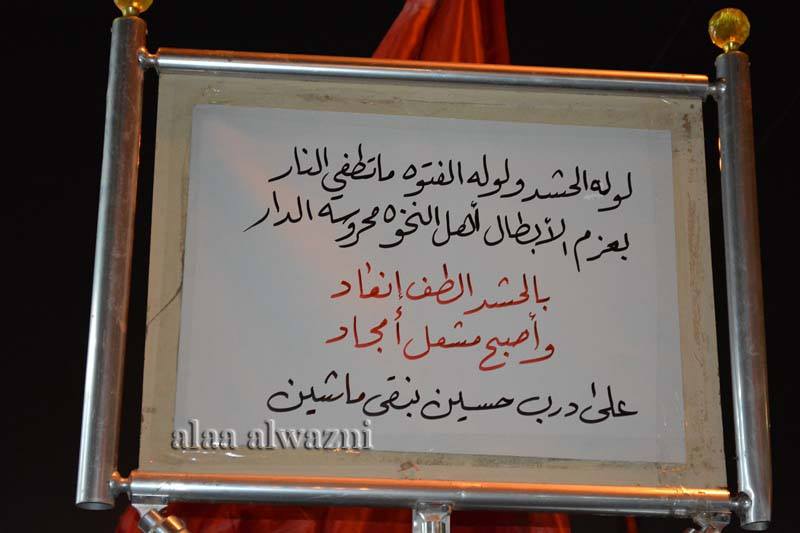 لوله الحشد ولوله الفتوه ماتطفي النار
بعزم الأبطال أهل النخوه محروسه الدار
بالحشد الطف إنعاد
وأصبح مشعل أمجاد
على درب حسين نبقى ماشين
alaa alwazni